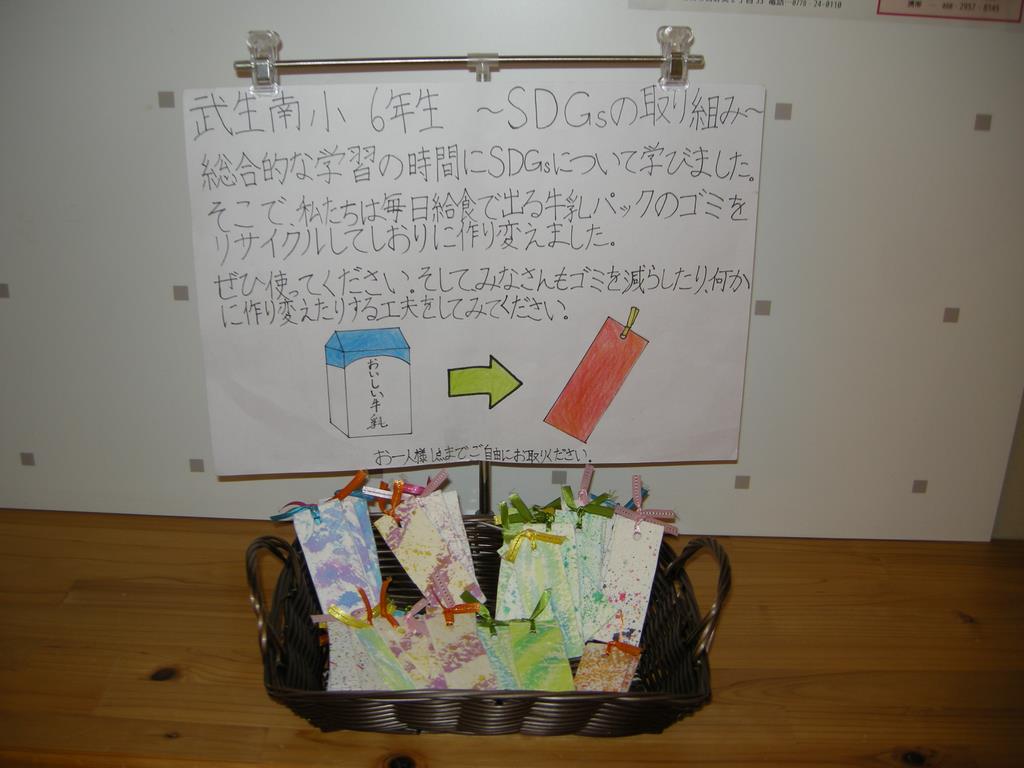 電話…0778-24-0110
携帯
武生南小 6年生 ～SDGsの取り組み～
総合的な学習の時間にSDGsについて学びました。
そこで、私たちは毎日給食で出る牛乳パックのゴミを
リサイクルしてしおりに作り変えました。
ぜひ使ってください。そしてみなさんもゴミを減らしたり、何か
に作り変えたりする工夫をしてみてください。
おいしい牛乳
お一人様1点までご自由にお取りください。